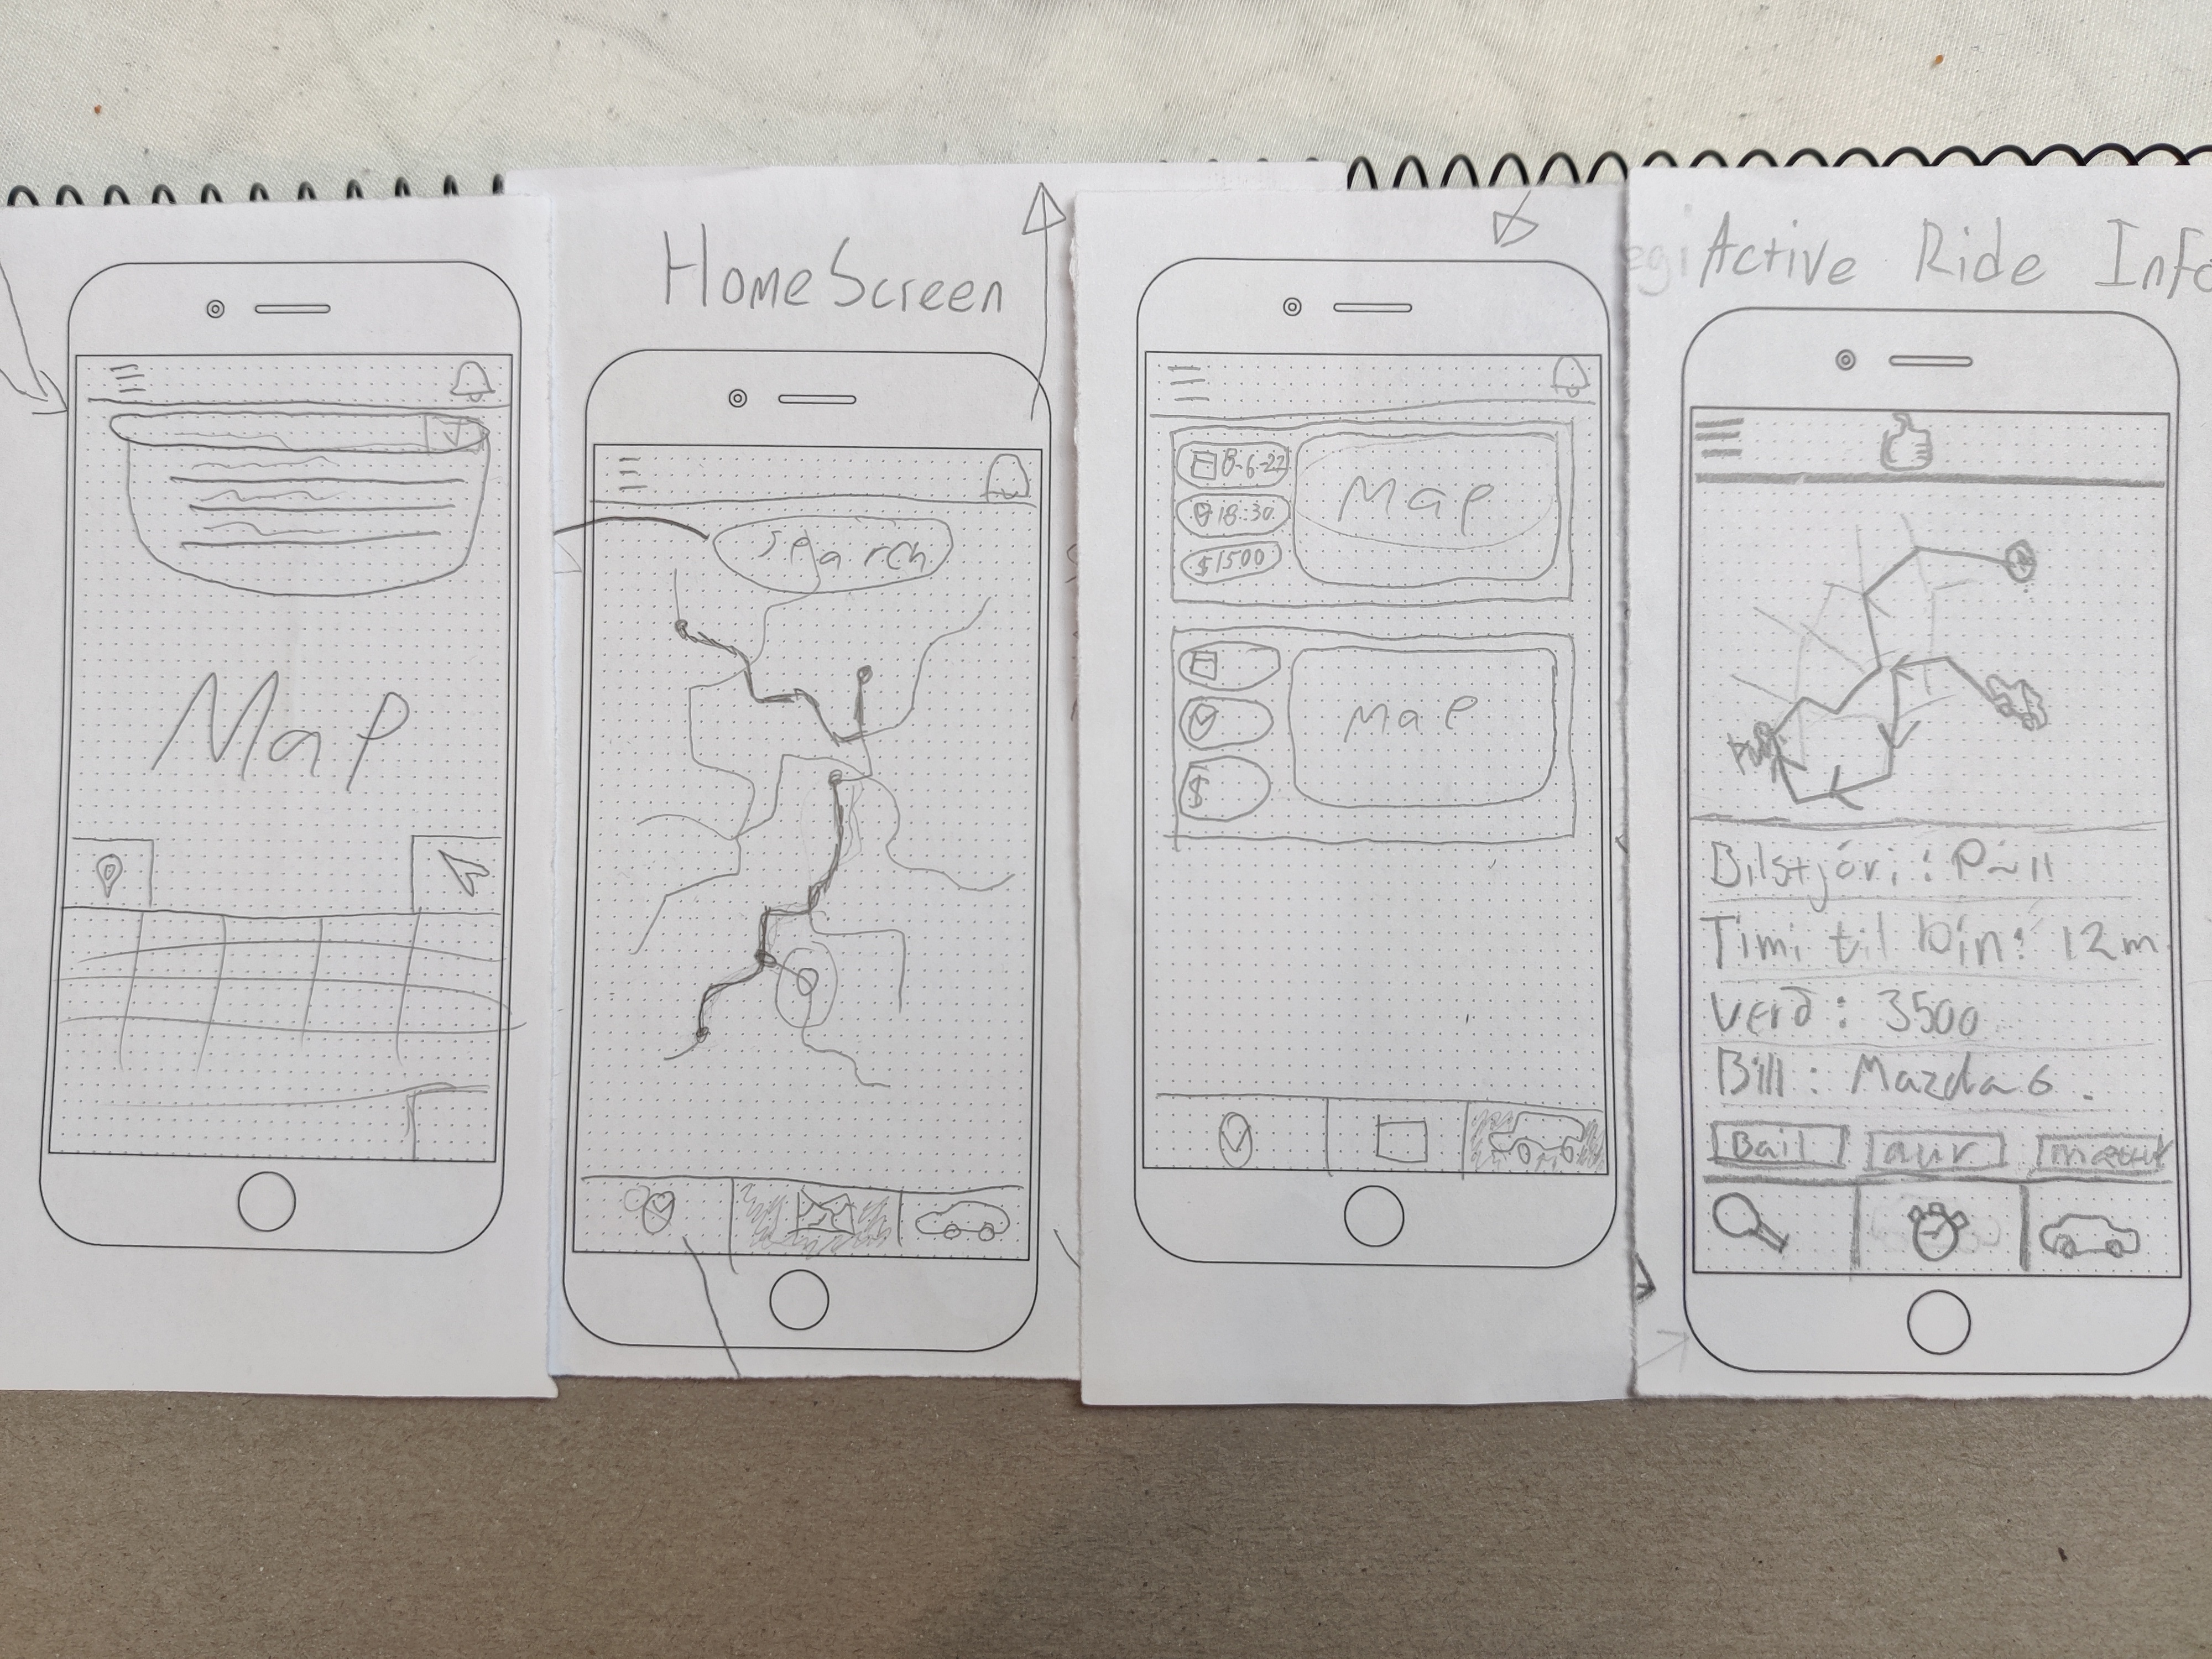 Map
HomeScreen
search
8-6-22
Map
18:30
$1500
Map
$
Active Ride Info
Bilstjóri: Páll
Timi til þín: 12m
Verð: 3500
Bíll: Mazda 6
Bail
aur